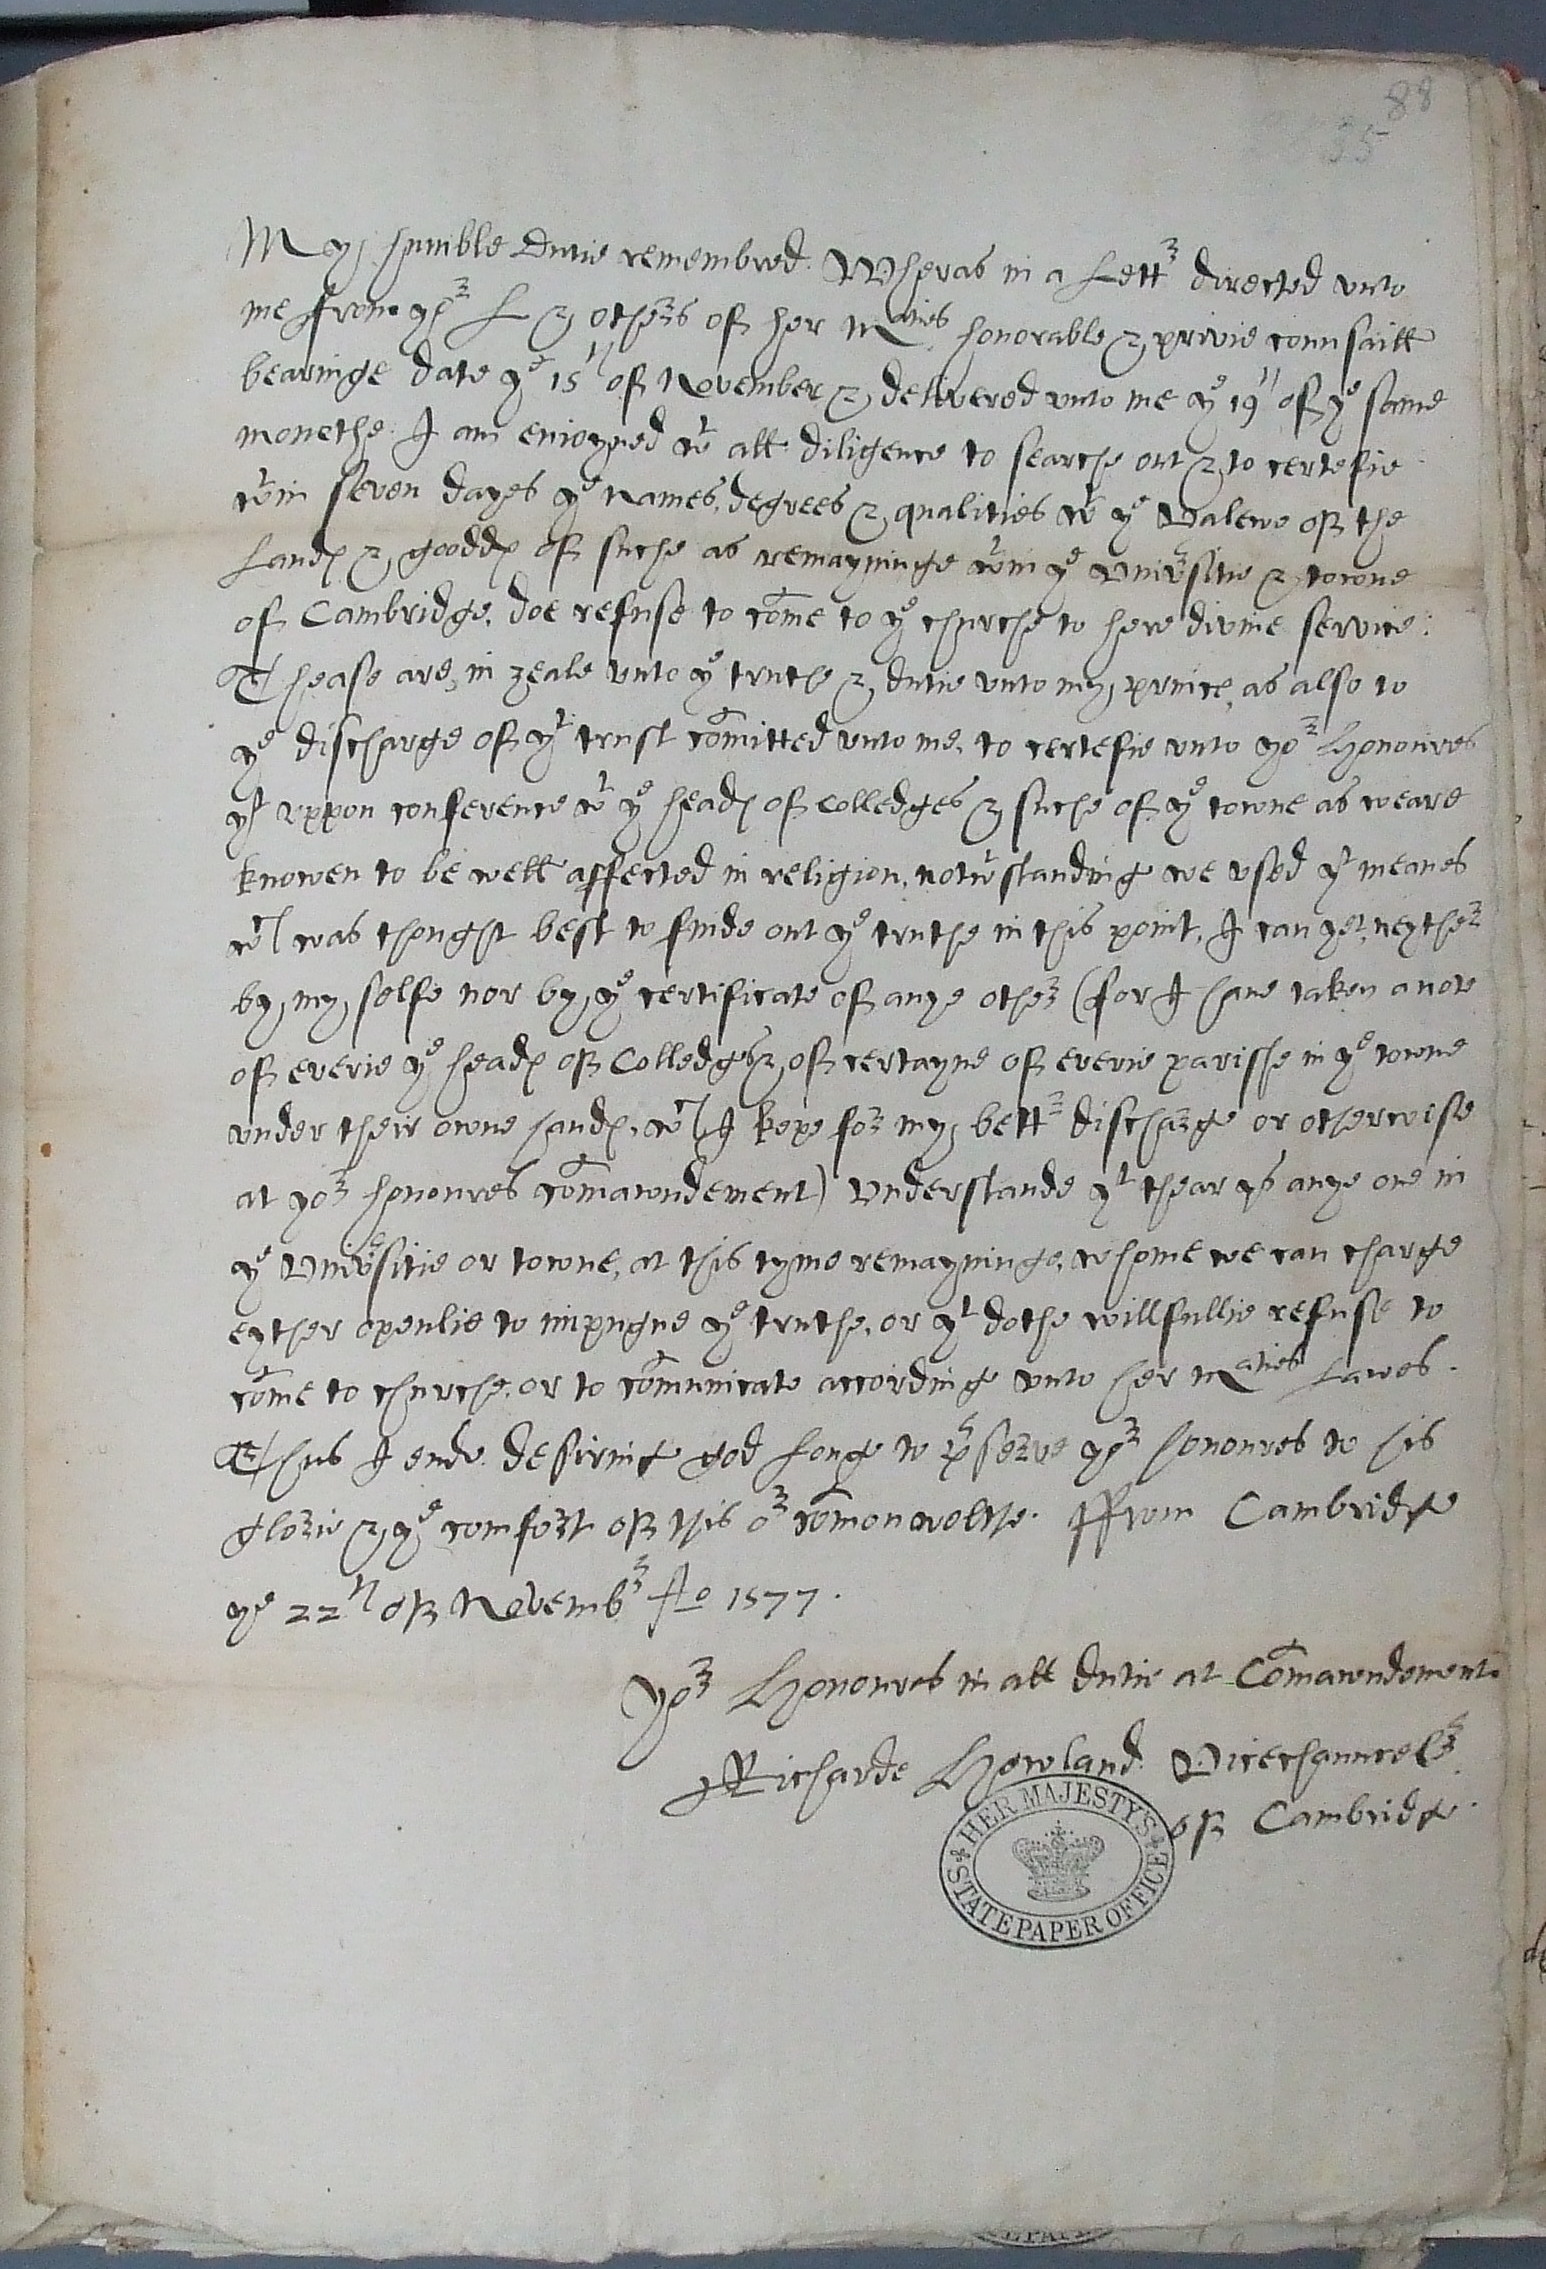 88
35
My humble dutie remembred. Wheras in a Lettr directed unto
me from yor L & others of her Maties honorable & privie counsaill
bearinge date ye 15th of November & delivered unto me ye 19th of ye same
monethe. I am enioyned wt all diligence to searche out & to certefie
wtin seven dayes ye names, degrees & qualities wt ye valewe of the
Landes & gooddes of suche as remayninge wtin ye Universitie & towne
of Cambridge, doe refuse to come to ye churche to here divine service:
Thease are, in zeale unto ye truthe & dutie unto my prince, as also to
ye discharge of yt trust comitted unto me, to certefie unto yor Honoures
yt uppon conference wt ye heades of Colledges & suche of ye towne as weare
knowen to be well affected in religion, notwtstanding we used yt meanes
wch was thought best to finde out ye truthe in this point, I can yet, neyther
by my selfe nor by ye certificate of anye other (for I have taken a note
of everie ye heades of Colledges & of certayne of everie parishe in ye towne
under their owne handes, wch I kepe for my bettr discharge or otherwise
at yor honoures comaundement) Understande yt thear ys anye one in
ye Universitie or towne, at this tyme remayninge, whome we can charge
eyther openlie to impugne ye truthe, or yt dothe willfullie refuse to
come to churche, or to comunicate according unto her Maties Lawes.
Thus I ende desiring god long to preserve yor honoures to his
glorie & ye comfort of this or comon welthe. From Cambridge
ye 22th of Novembr Ao 1577.
Yor Honoures in all dutie at Comaundement.
Richarde Howland Vicechauncelr
of Cambridge.
HER MAJESTY'S
STATE PAPER OFFICE